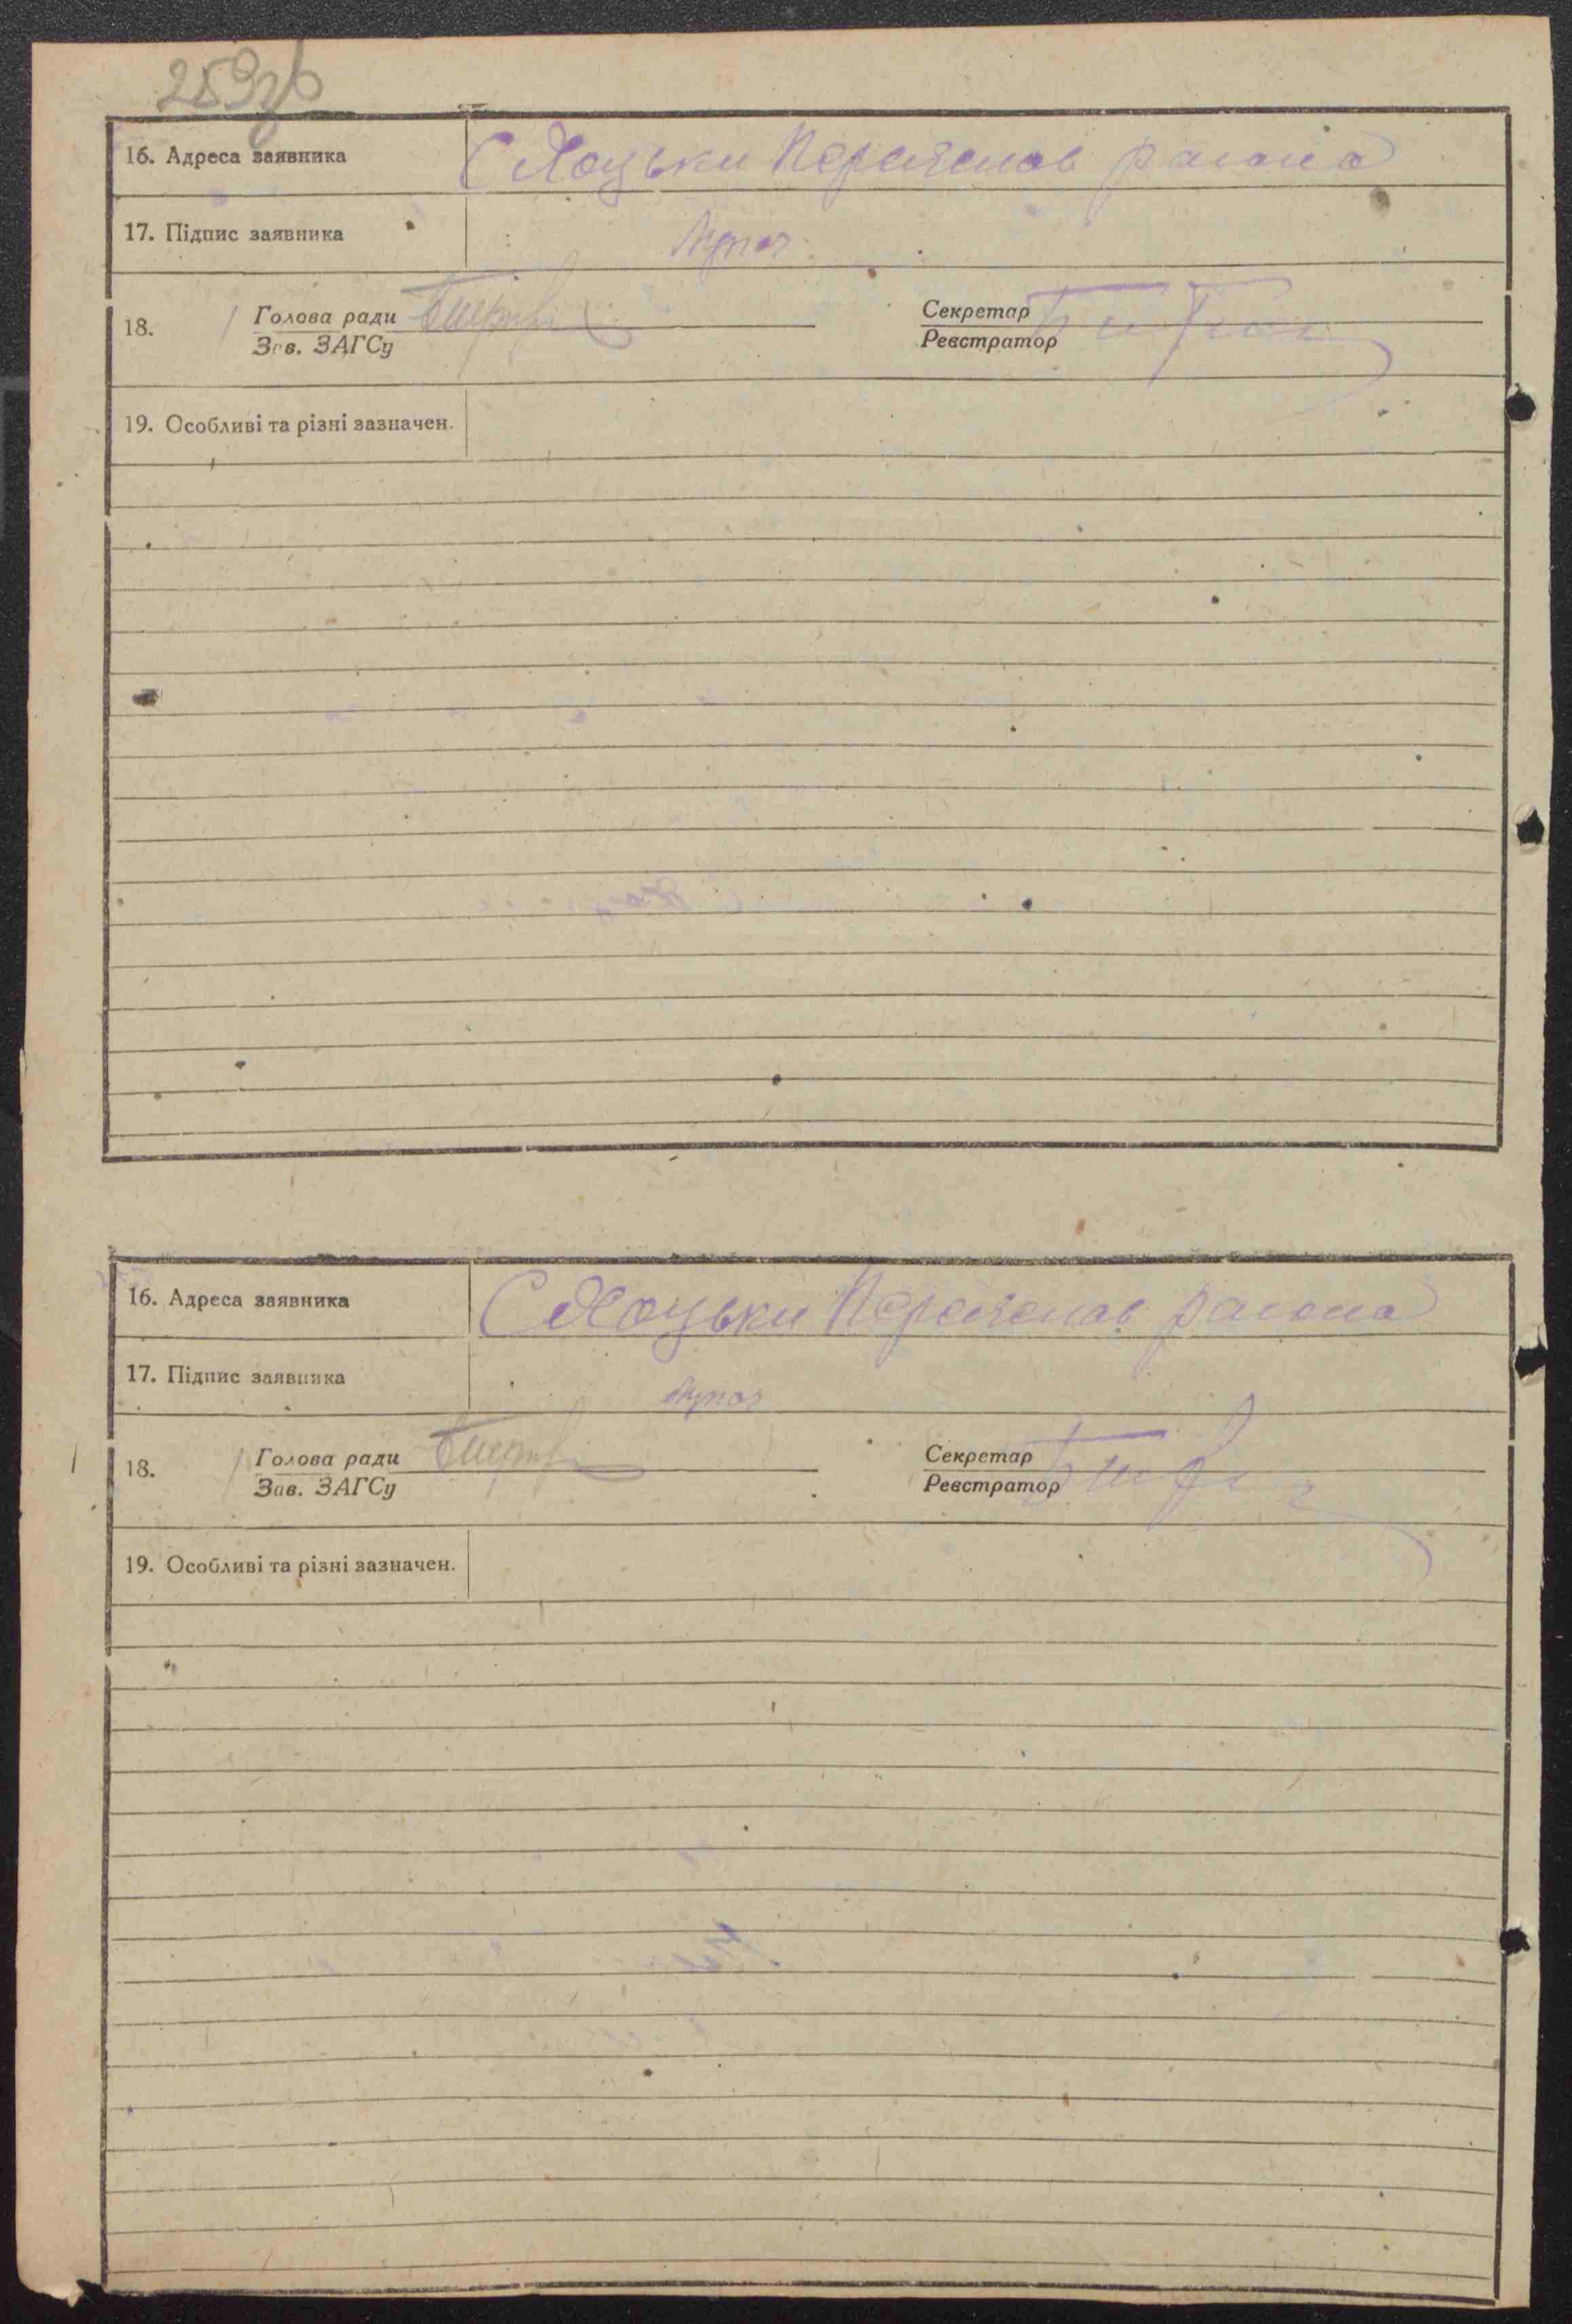 259зв
16. Адреса заявника С Хоцьки Переяслав района
17. Підпис заявника
18. Голова ради Секретар
Зав. ЗАГСу Реєстратор
19. Особливі та різні зазначен.
16. Адреса заявника С Хоцьки Переяслав района
17. Підпис заявника
18. Голова ради Секретар
Зав. ЗАГСу Реєстратор
19. Особливі та різні зазначен.